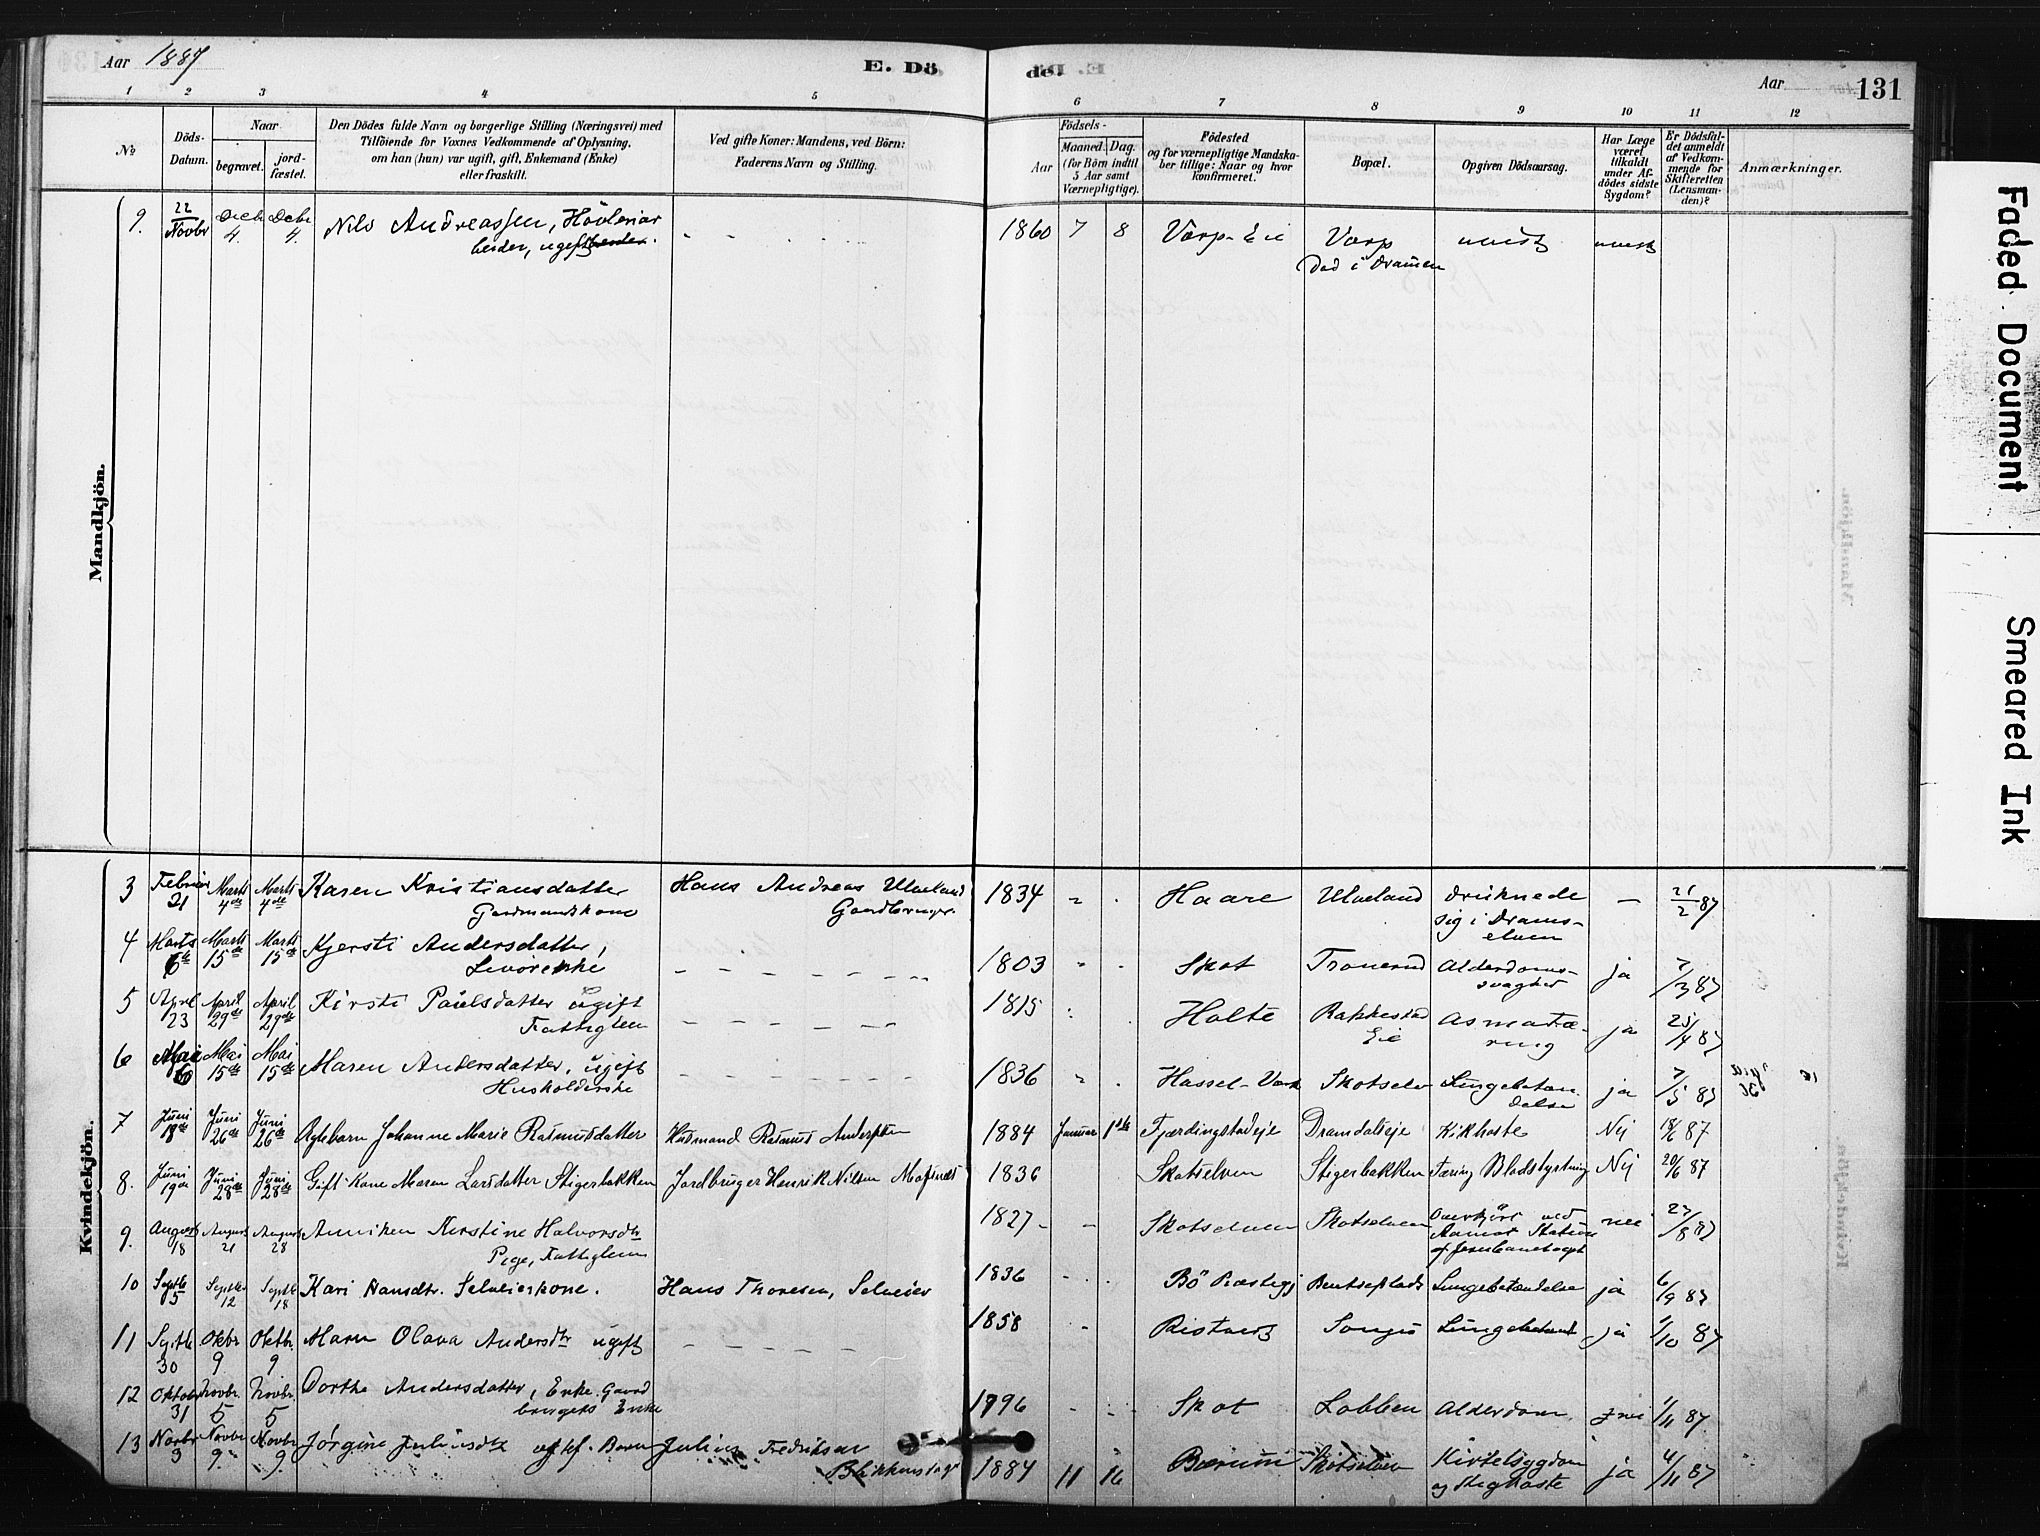 Aar 1887 E. Dö de. Aar 131
1 2 3 4 5 6 7 8 9 10 11 12
No
Döds-Datum.
Naar
begravet.
jordfæstet.
Den Dödes fulde Navn og borgerlige Stilling (Næringsvei) med
Tilföiende for Voxnes Vedkommende af Oplysning,
om han (hun) var ugift, gift, Enkemand (Enke)
eller fraskilt.
Ved gifte Koner: Mandens, ved Börn:
Faderens Navn og Stilling.
Födsels-
Aar
Maaned. Dag.
(for Börn indtil
5 Aar samt
Værnepligtige).
Födested
og for værnepligtige Mandskaber tillige: Naar og hvor
konfirmeret.
Bopæl.
Opgiven Dödsaarsag.
Har Læge
været
tilkaldt
under Afdödes sidste
Sygdom?
Er Dödsfaldet anmeldt
af Vedkommende for
Skifteretten
(Lensmanden)?
Anmærkninger.
Mandkjön.
9. 22 Novbr Decbr 4. Decbr 4. Nils Andreassen, Høvleriar
beider, ugift
1860 7 8 Varp Eie Varp
Død i Dramen
Kvindekjön.
3 Februar 21 Marts 4de Marts 4de Karen Kristiansdatter
Gaardmandskone
Hans Andreas Ulveland
Gaardbruger
1834 Haare Ulveland Druknede
sig i Dramselven
— 21/2 87
4 Marts 6te Marts 15de Marts 15de Kjersti Andersdatter,
1803 Skot Tronerud Alderdomssvaghed ja 7/3 87
5 April 23 April 29de April 29de Kirsti Paulsdatter ugift
Fattiglem
1815 Holte Rakkestad
Eie
ja 25/4 87
6 Mai Mai 15de Mai 15de Maren Andersdatter, ugift
Husholderske
1836 Hassel-Værk Skotselv Lungebetændelse ja 7/5 87
7 Juni 18de Juni 26de Juni 26de Johanne Marie Rasmusdatter
Husmand Rasmus Anderssen
1884 Januar 1ste Fjerdingstadeje Dramdalseje Kikhoste Nej 18/6 87
8. Juni 19de Juni 28de Juni 28de Gift Kone Maren Larsdatter Stigerbakken
Jordbruger Henrik Nilsen
1836 Skotselven Stigerbakken Tæring Blodstyrtning Nej 20/6 87
9. August 18 August 21 August 28 Anniken Kirstine Halvorsdtr
Pige, Fattiglem
1827 Skotselven Skotselven Overkjørt ved
Aamot Station
af Jernbanetoget
nei 27/8 87
10 Septb 5 Septbr 12 Septbr 18 Kari Hansdtr. Selveierkone.
Hans Thoresen, Selveier
1836 Bö Præstegj Bentseplads Lungebetændelse ja 6/9 87
11 Septb 30 Oktbr 9 Oktbr 9 Maren Olava Andersdtr ugift
1858 Songis Lungebetænd ja 1/10 87
12 Oktobr 31 Novbr. 5 Novbr. 5 Dorthe Andersdatter, Enke. Gaard
brugers Enke
1796 Skot Lobben Alderdom 1/11 87
13 Novbr 3 Novbr 9 Novbr 9 Jørgine Juliusdtr Barn
Julius Fredriksen
1884 11 16 Bærum Skotselven Kirtelsygdom
og Kighoste
ja 4/11 87
Faded Document
Smeared Ink